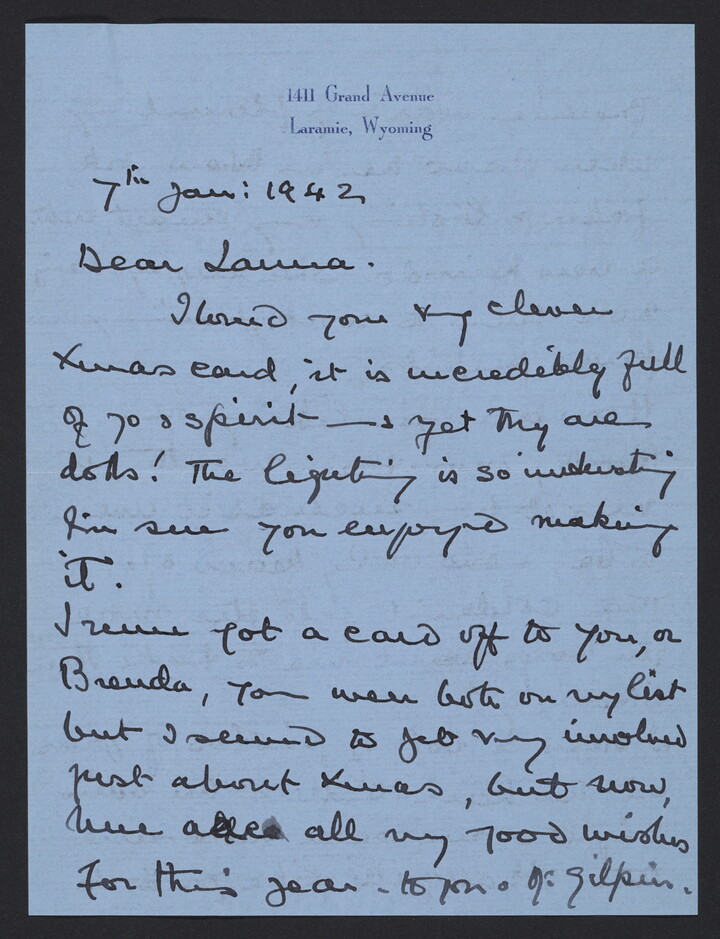 1411 Grand Avenue
Laramie, Wyoming
7th Jan: 1942
Dear Laura.
I loved your very clever
Xmas card, it is incredibly full
of spirit — & yet they are
dolls! The lighting is so
I'm sure you enjoyed making
it.
I never got a card off to you, or
Brenda, you were both on my list
but I seemed to get very involved
just about Xmas, but now,
here all my good wishes
For this year - to you & Mr Gilpin.